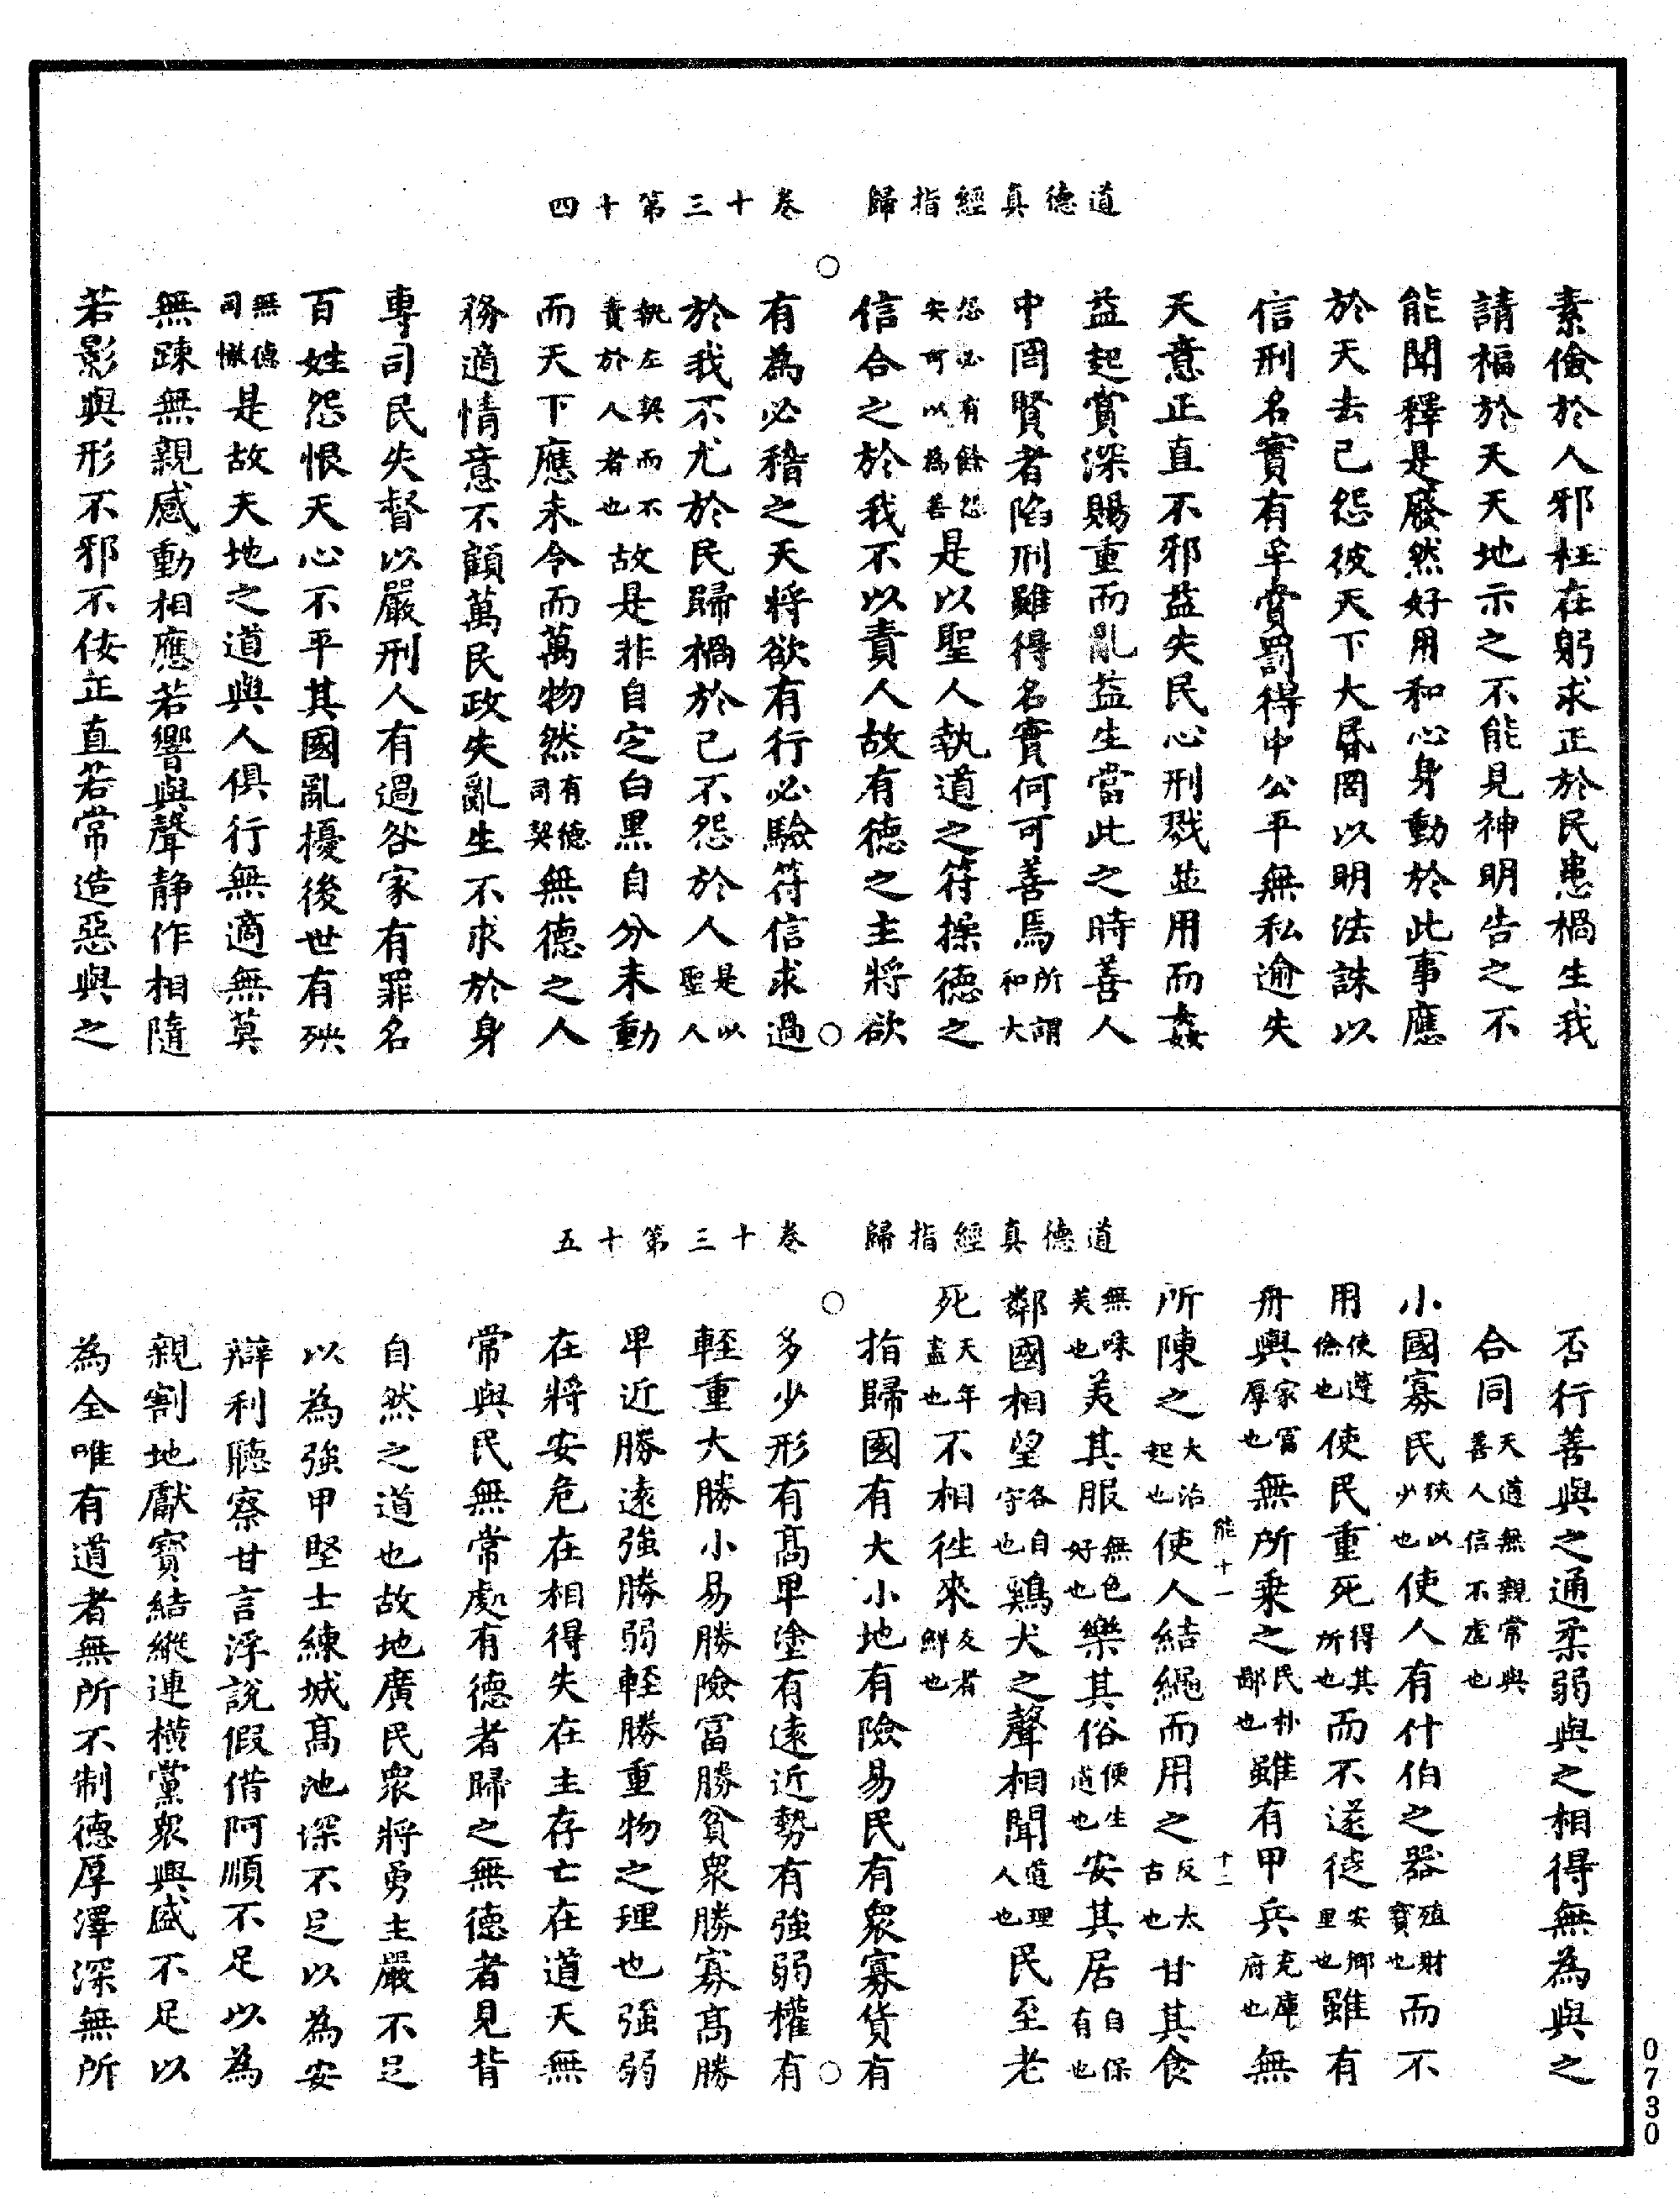 道德真經指歸　卷十三第十四
素儉於人邪枉在躬求正於民患禍生我
請福於天天地示之不能見神明告之不
能聞釋是廢然好用和心身動於此事應
於天去己怨彼天下大昏罔以明法誅以
信刑名實有孚賞罰得中公平無私逾失
天意正直不邪益失民心刑戮並用而姦
益起賞深賜重而亂益生當此之時善人
中罔賢者陷刑雖得名實何可善焉所謂和大
怨必有餘怨安可以為善是以聖人執道之符操德之
信合之於我不以責人故有德之主將欲
有為必稽之天將欲有行必驗符信求過
於我不尤於民歸禍於己不怨於人是以聖人
執左契而不責於人者也故是非自定白黑自分未動
而天下應未令而萬物然有德司契無德之人
務適情意不顧萬民政失亂生不求於身
專司民失督以嚴刑人有過咎家有罪名
百姓怨恨天心不平其國亂擾後世有殃
無德司徹是故天地之道與人俱行無適無莫
無踈無親感動相應若響與聲静作相隨
若影與形不邪不佞正直若常造惡與之
道德真經指歸　卷十三第十五
否行善與之通柔弱與之相得無為與之
合同天道無親常與善人信不虛也
小國寡民狹以少也使人有什伯之器殖財寶也而不
用使遵儉也使民重死得其所也而不遂徙安鄉里也雖有
舟輿家富厚也無所乗之民朴鄙也雖有甲兵充庫府也無
能十一　十二
所陳之大治起也使人結繩而用之反太古也甘其食
無味美也美其服無色好也樂其俗便生道也安其居自保有也
鄰國相望各自守也鷄犬之聲相聞道理人也民至老
死天年盡也不相徃來友者鮮也
指歸國有大小地有險易民有衆寡貨有
多少形有髙卑塗有遠近勢有強弱權有
輕重大勝小易勝險冨勝貧衆勝寡髙勝
卑近勝遠強勝弱輕勝重物之理也強弱
在將安危在相得失在主存亡在道天無
常與民無常處有德者歸之無德者見背
自然之道也故地廣民衆將勇主嚴不足
以為強甲堅士練城髙池深不足以為安
辯利聽察甘言浮說假借阿順不足以為
親割地獻寶結縱連橫黨衆興盛不足以
為全唯有道者無所不制德厚澤深無所
0730